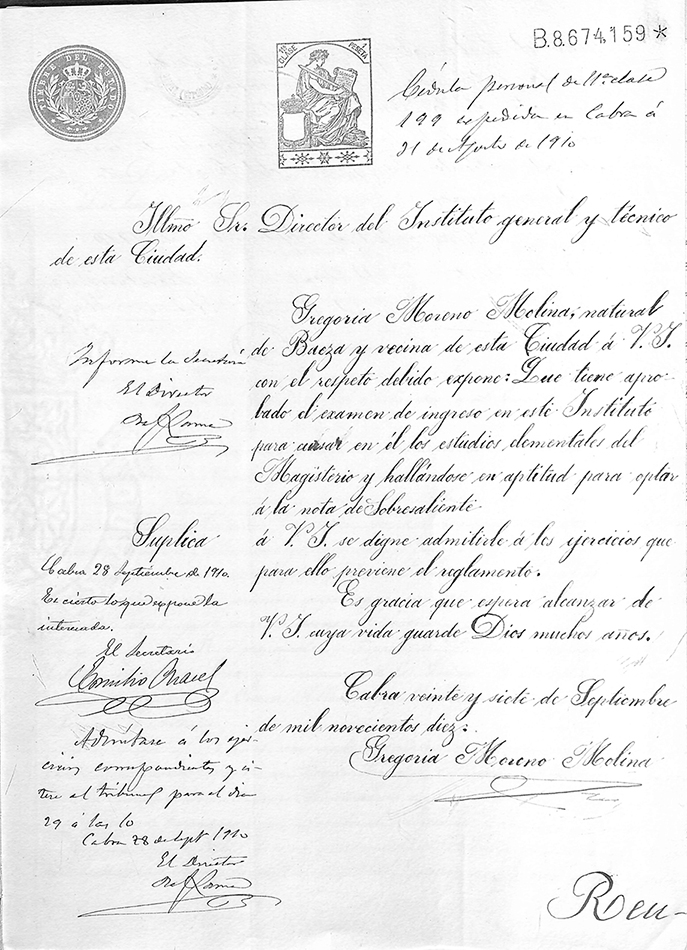 TIMBRE DEL ESTADO
11ª CLASE
1 PESETA
B.8.674,159*
Cédula personal de 11ª clase
199 expedida en Cabra á
31 de Agosto de 1910
Illmo Sr. Director del Instituto general y técnico
de esta Ciudad.
Gregoria Moreno Molina, natural
de Baeza y vecina de esta Ciudad á V. I.
con el respeto debido expone: Que tiene apro-
bado el examen de ingreso en este Instituto
para cursar en él los estudios elementales del
Magisterio y hallándose en aptitud para optar
á la nota de Sobresaliente
Suplica
á V. I. se digne admitirle á los ejercicios que
para ello previene el reglamento.
Es gracia que espera alcanzar de
V. I. cuya vida guarde Dios muchos años.
Cabra veinte y siete de Septiembre
de mil novecientos diez.
Gregoria Moreno Molina
Informe la Secretaría
El Director
Cabra 28 Septiembre de 1910.
Es cierto lo que expone la
interesada.
El Secretario
Emilio
Admítase á los ejer-
cicios correspondientes y cí-
tese al tribunal para el dia
29 á las 10
Cabra 28 de Sept 1910
El Director
Reu-